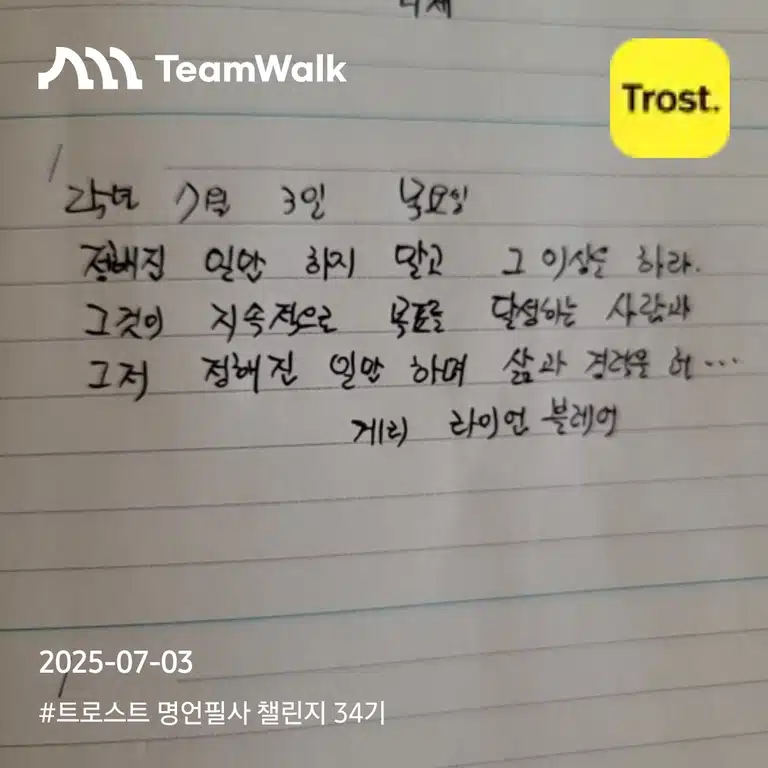 TeamWalk
Trost.
7월 3일 목요일
정해진 일만 하지 말고 그 이상을 하라.
그것이 지속적으로 목표를 달성하는 사람과
그저 정해진 일만 하며 삶과 경력을 허…
게리 라이언 블레어
2025-07-03
#트로스트 명언필사 챌린지 34기